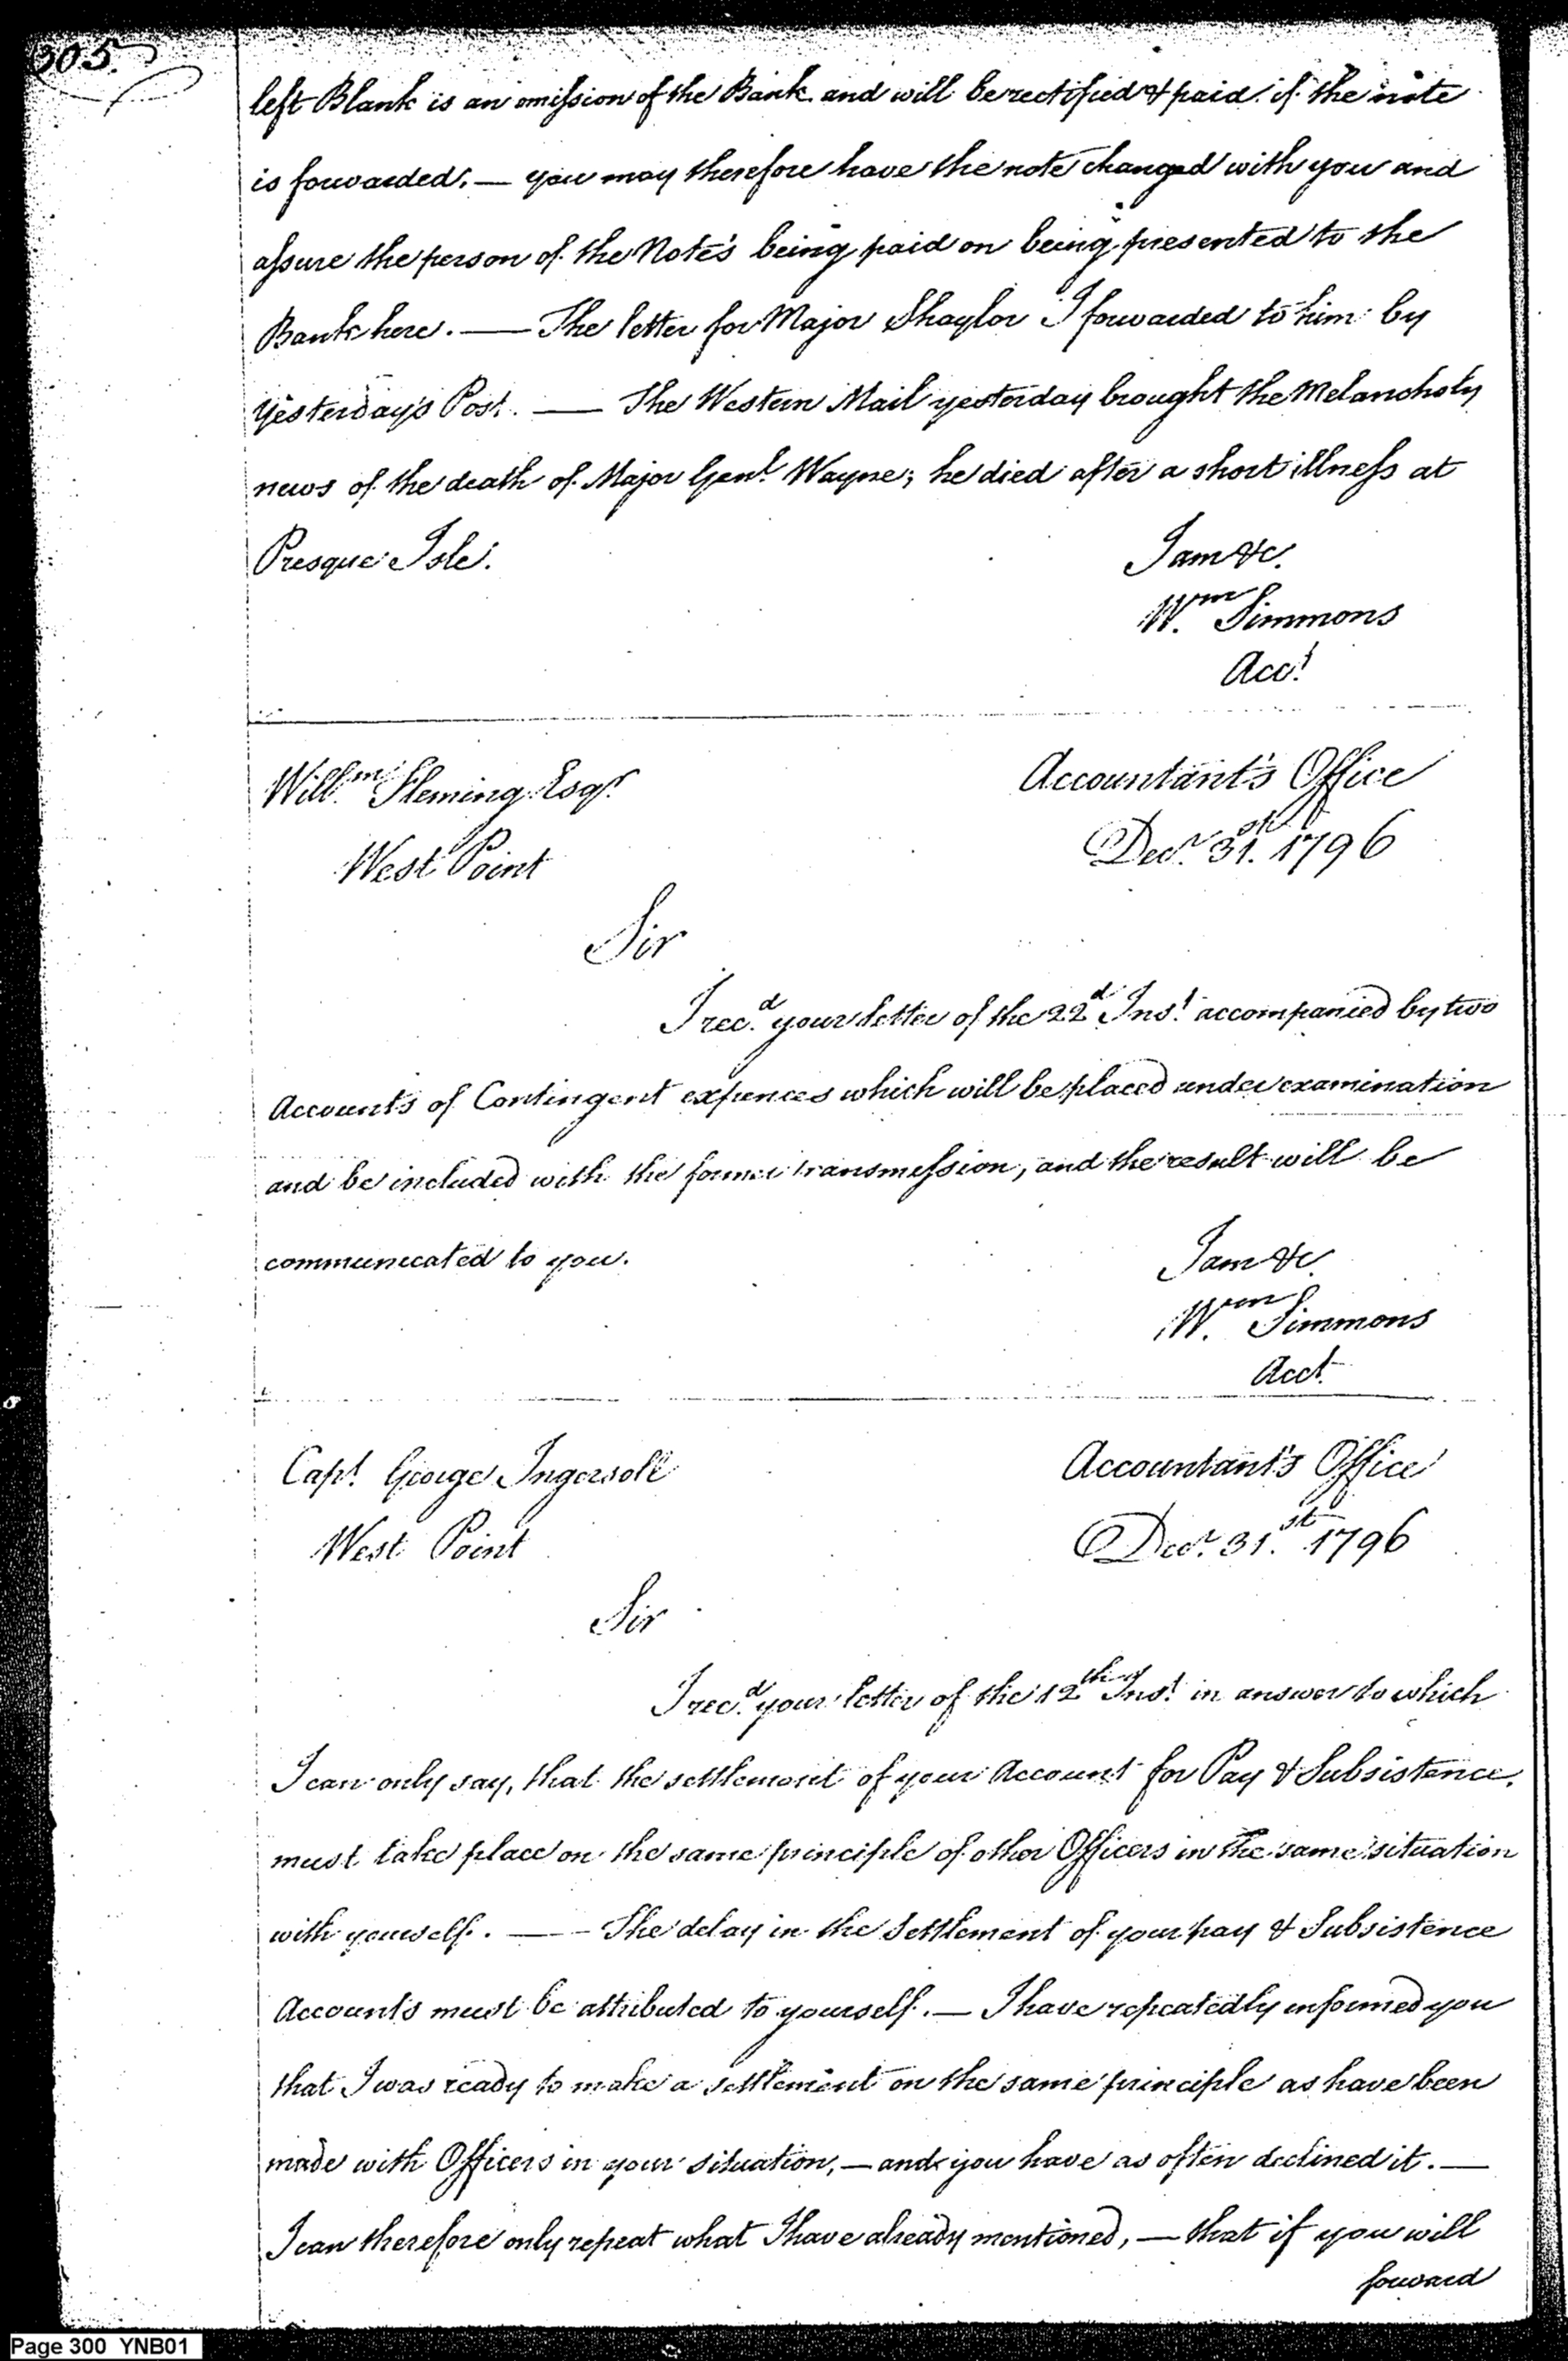 305.
left Blank is an omission of the Bank and will be rectified & paid if the note
is forwarded. — you may therefore have the note changed with you and
assure the person of the Note's being paid on being presented to the
Bank here. — The letter for Major Shaylor I forwarded to him by
Yesterday's Post. — The Western Mail yesterday brought the Melancholy
news of the death of Major Genl. Wayne; he died after a short illness at
Presque Isle. I am &c.
Wm. Simmons
Acct.
Willm. Fleming Esqr. Accountant's Office
West Point Decr. 31st. 1796
Sir
I recd. your letter of the 22d Inst. accompanied by two
Accounts of Contingent expences which will be placed under examination
and be included with the former transmession, and the result will be
communicated to you. I am &c.
Wm. Simmons
Acct.
Capt. George Ingersoll Accountant's Office
West Point Decr. 31st. 1796
Sir
I recd. your letter of the 12th Inst. in answer to which
I can only say, that the settlement of your Account for Pay & Subsistance,
must take place on the same principle of other Officers in the same situation
with yourself. — The delay in the Settlement of your pay & Subsistence
Accounts must be attributed to yourself. — I have repeatedly informed you
that I was ready to make a settlement on the same principle as have been
made with Officers in your situation, — and you have as often declined it. —
I can therefore only repeat what I have already mentioned, — that if you will
forward
Page 300 YNB01